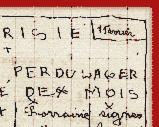 RISIE 11 février
PERDU WAGER
E DEX MOIS
Lorraine signes